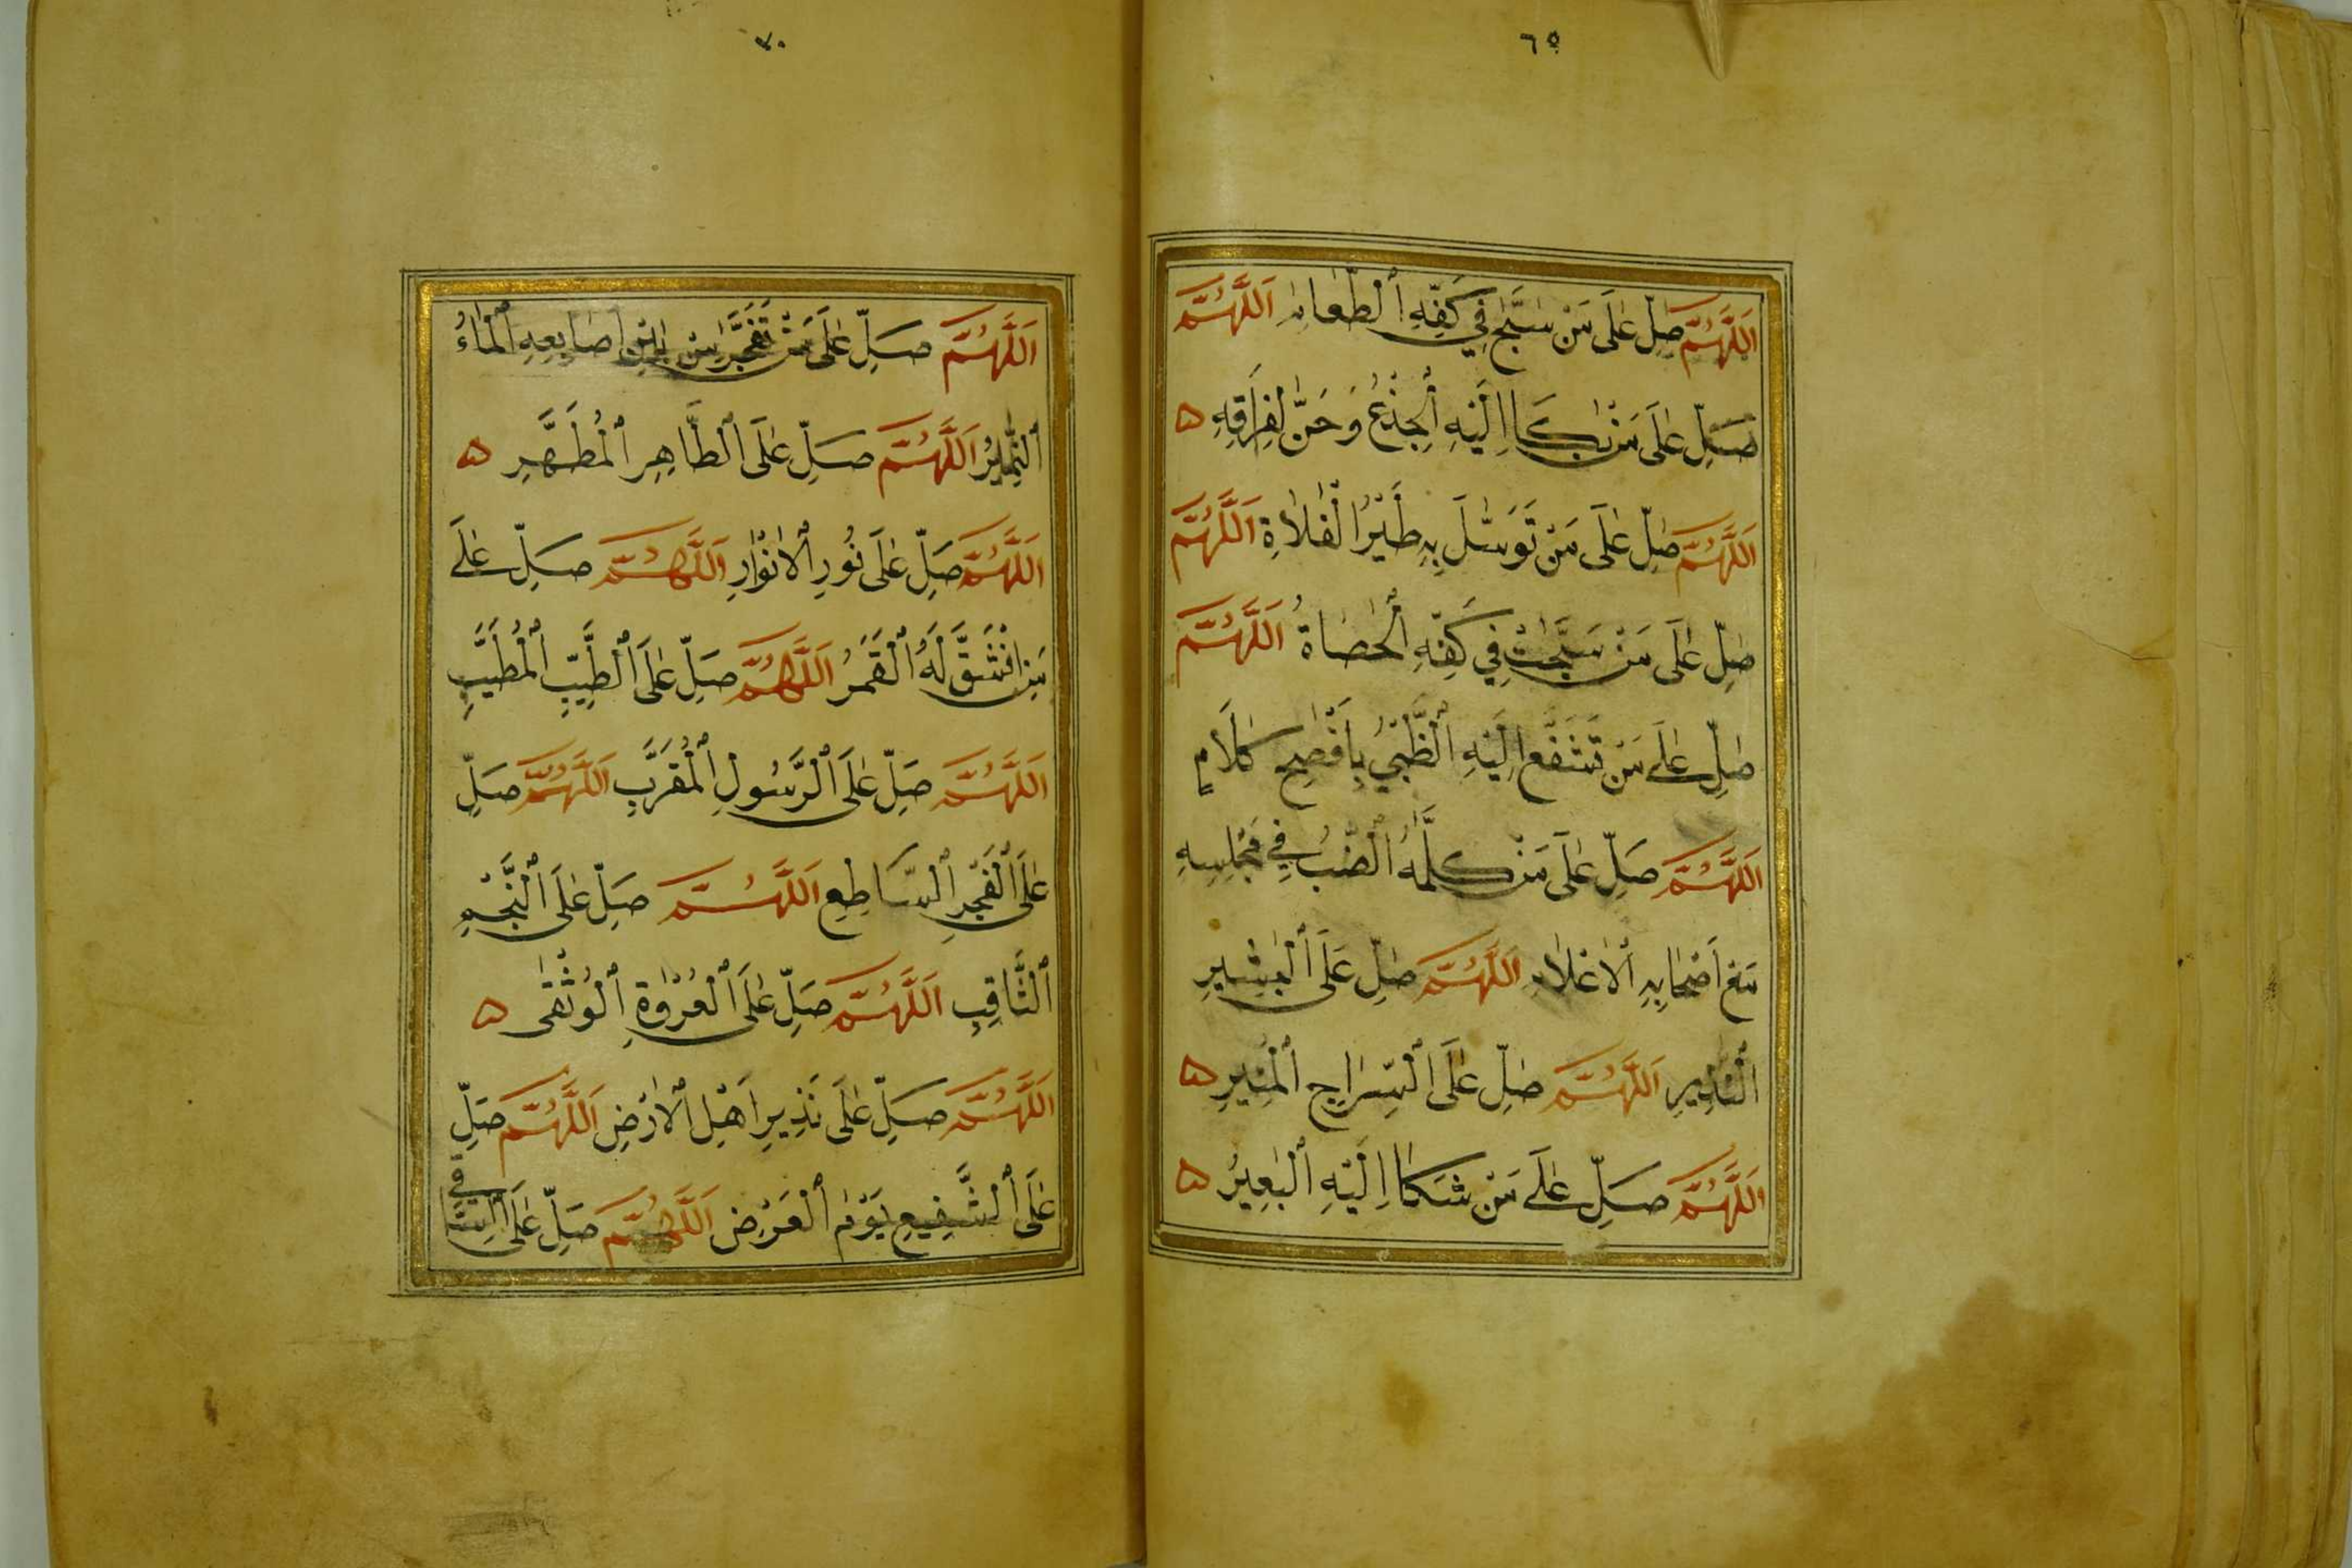 ٦٥
اَللّٰهُمَّ صَلِّ عَلَى مَنْ سَبَّحَ فِي كَفِّهِ الطَّعَامُ اَللّٰهُمَّ
صَلِّ عَلَى مَنْ بَكَا اِلَيْهِ الْجِذْعُ وَحَنَّ لِفِرَاقِهِ ۵
اَللّٰهُمَّ صَلِّ عَلَى مَنْ تَوَسَّلَ بِهِ طَيْرُ الْفَلَاةِ اَللّٰهُمَّ
صَلِّ عَلَى مَنْ سَبَّحَتْ فِي كَفِّهِ الْحَصَاةُ اَللّٰهُمَّ
صَلِّ عَلَى مَنْ تَشَفَّعَ اِلَيْهِ الظَّبْيُ بِاَفْصَحِ كَلَامٍ
اَللّٰهُمَّ صَلِّ عَلَى مَنْ كَلَّمَهُ الضَّبُّ فِي مَجْلِسِهِ
مَعَ اَصْحَابِهِ الْاَعْلَامِ اَللّٰهُمَّ صَلِّ عَلَى الْبَشِيرِ
النَّذِيرِ اَللّٰهُمَّ صَلِّ عَلَى السِّرَاجِ الْمُنِيرِ ۵
اَللّٰهُمَّ صَلِّ عَلَى مَنْ شَكَا اِلَيْهِ الْبَعِيرُ ۵
اَللّٰهُمَّ صَلِّ عَلَى مَنْ تَفَجَّرَ مِنْ بَيْنِ اَصَابِعِهِ الْمَاءُ
النَّمِيرُ اَللّٰهُمَّ صَلِّ عَلَى الطَّاهِرِ الْمُطَهَّرِ ۵
اَللّٰهُمَّ صَلِّ عَلَى نُورِ الْاَنْوَارِ اَللّٰهُمَّ صَلِّ عَلَى
مَنِ انْشَقَّ لَهُ الْقَمَرُ اَللّٰهُمَّ صَلِّ عَلَى الطَّيِّبِ الْمُطَيَّبِ
اَللّٰهُمَّ صَلِّ عَلَى الرَّسُولِ الْمُقَرَّبِ اَللّٰهُمَّ صَلِّ
عَلَى الْفَجْرِ السَّاطِعِ اَللّٰهُمَّ صَلِّ عَلَى النَّجْمِ
الثَّاقِبِ اَللّٰهُمَّ صَلِّ عَلَى الْعُرْوَةِ الْوُثْقَى ۵
اَللّٰهُمَّ صَلِّ عَلَى نَذِيرِ اَهْلِ الْاَرْضِ اَللّٰهُمَّ صَلِّ
عَلَى الشَّفِيعِ يَوْمَ الْعَرْضِ اَللّٰهُمَّ صَلِّ عَلَى السَّاقِي